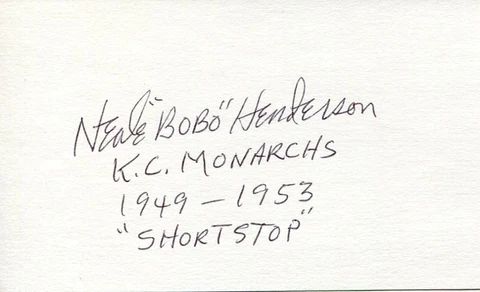 Neale "BOBO" Henderson
K.C. MONARCHS
1949 - 1953
"SHORTSTOP"